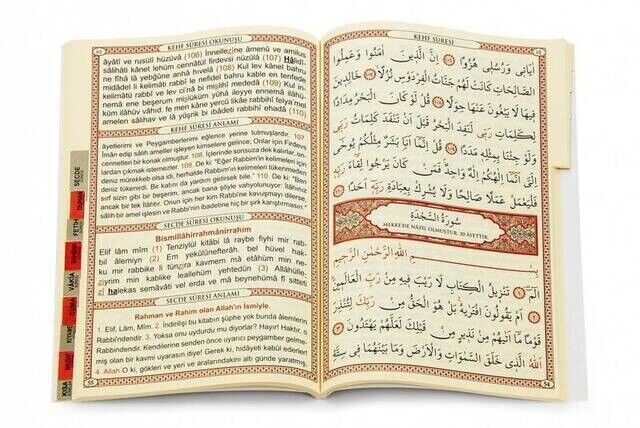 KEHF SÛRESİ OKUNUŞU
âyâtî ve rusulî hüzüvâ (106) İnnellezîne âmenû ve amilus
sâlihâti kânet lehüm cennâtül firdevsi nüzülâ (107) Hâlidî-
ne fîhâ lâ yebğûne anhâ hıvelâ (108) Kul lev kânel bahru
midâdel li kelimâti rabbî le nefidel bahru kable en tenfede
kelimâtü rabbî ve lev ci'nâ bi mislihî mededâ (109) Kul in-
nemâ ene beşerum mislüküm yûhâ ileyye ennemâ ilâhü-
küm ilâhüv vâhid, fe men kâne yercû likâe rabbihî felya'mel
amelen sâlihav ve lâ yüşrik bi ıbâdeti rabbihî ehadâ (110)
KEHF SÛRESİ ANLAMI
âyetlerimi ve Peygamberlerimi eğlence yerine tutmuşlardır. 107.
İman edip sâlih ameller işleyen kimselere gelince; Onlar için Firdevs
cennetleri bir konak olmuştur. 108. İçlerinde sonsuza dek kalırlar, on-
lardan çıkmak istemezler. 109. De ki: "Eğer Rabbim'in kelimeleri için
deniz mürekkeb olsa idi, herhalde Rabbim'in kelimeleri tükenmeden
deniz tükenirdi. Bir katını da yardım getirsek bile." 110. De ki: "Ben
sırf sizin gibi bir beşerim, ancak bana şöyle vahyolunuyor: İlâhınız
ancak bir tek İlâhtır. Onun için her kim Rabbi'ne kavuşmayı dilerse,
sâlih bir amel işlesin ve Rabbi'nin ibadetine hiç bir şirk karıştırmasın."
SECDE SÛRESİ OKUNUŞU
Bismillâhirrahmânirrahîm
Elif lâm mîm (1) Tenzîylül kitâbi lâ raybe fîyhi mir rab-
bil âlemîyn (2) Em yekûlûnefterâh, bel hüvel hak-
ku mir rabbike li tünzira kavmem mâ etâhüm min ne-
zîyrim min kablike leallehüm yehtedûn (3) Allâhülle-
zî halekas semâvâti vel erda ve mâ beynehümâ fî sitteti
SECDE SÛRESİ ANLAMI
Rahman ve Rahim olan Allah'ın İsmiyle.
1. Elif, Lâm, Mîm. 2. İndirilişi bu kitabın şüphe yok bunda âlemlerin
Rabbi'ndendir. 3. Yoksa onu uydurdu mu diyorlar? Hayır! Haktır, o
Rabbinden. Kendilerine senden önce uyarıcı peygamber gelme-
miş olan bir kavmi uyarasın diye! Gerek ki, hidâyeti kabul ederler!
4. Allah O ki, gökleri ve yeri ve aralarındakini altı günde yaratmış,
55
SECDE
DUHAN
FETİH
VÂKIA
KEHF SÛRESİ
اٰيَاتٖي وَرُسُلٖي هُزُوًا ﴿١٠٦﴾ اِنَّ الَّذٖينَ اٰمَنُوا وَعَمِلُوا
الصَّالِحَاتِ كَانَتْ لَهُمْ جَنَّاتُ الْفِرْدَوْسِ نُزُلًا ﴿١٠٧﴾ خَالِدٖينَ
فٖيهَا لَا يَبْغُونَ عَنْهَا حِوَلًا ﴿١٠٨﴾ قُلْ لَوْ كَانَ الْبَحْرُ مِدَادًا
لِكَلِمَاتِ رَبّٖي لَنَفِدَ الْبَحْرُ قَبْلَ اَنْ تَنْفَدَ كَلِمَاتُ رَبّٖي
وَلَوْ جِئْنَا بِمِثْلِهٖ مَدَدًا ﴿١٠٩﴾ قُلْ اِنَّمَا اَنَا بَشَرٌ مِثْلُكُمْ يُوحٰٓى
اِلَيَّ اَنَّمَا اِلٰهُكُمْ اِلٰهٌ وَاحِدٌ فَمَنْ كَانَ يَرْجُوا لِقَاءَ رَبِّهٖ
فَلْيَعْمَلْ عَمَلًا صَالِحًا وَلَا يُشْرِكْ بِعِبَادَةِ رَبِّهٖ اَحَدًا ﴿١١٠﴾
سُورَةُ السَّجْدَةِ
MEKKE'DE NÂZİL OLMUŞTUR. 30 ÂYETTİR.
بِسْمِ اللّٰهِ الرَّحْمٰنِ الرَّحٖيمِ
الٓمٓ ﴿١﴾ تَنْزٖيلُ الْكِتَابِ لَا رَيْبَ فٖيهِ مِنْ رَبِّ الْعَالَمٖينَ
﴿٢﴾ اَمْ يَقُولُونَ افْتَرٰيهُ بَلْ هُوَ الْحَقُّ مِنْ رَبِّكَ لِتُنْذِرَ
قَوْمًا مَا اَتٰيهُمْ مِنْ نَذٖيرٍ مِنْ قَبْلِكَ لَعَلَّهُمْ يَهْتَدُونَ ﴿٣﴾
اَللّٰهُ الَّذٖي خَلَقَ السَّمٰوَاتِ وَالْاَرْضَ وَمَا بَيْنَهُمَا فٖي سِتَّةِ
54